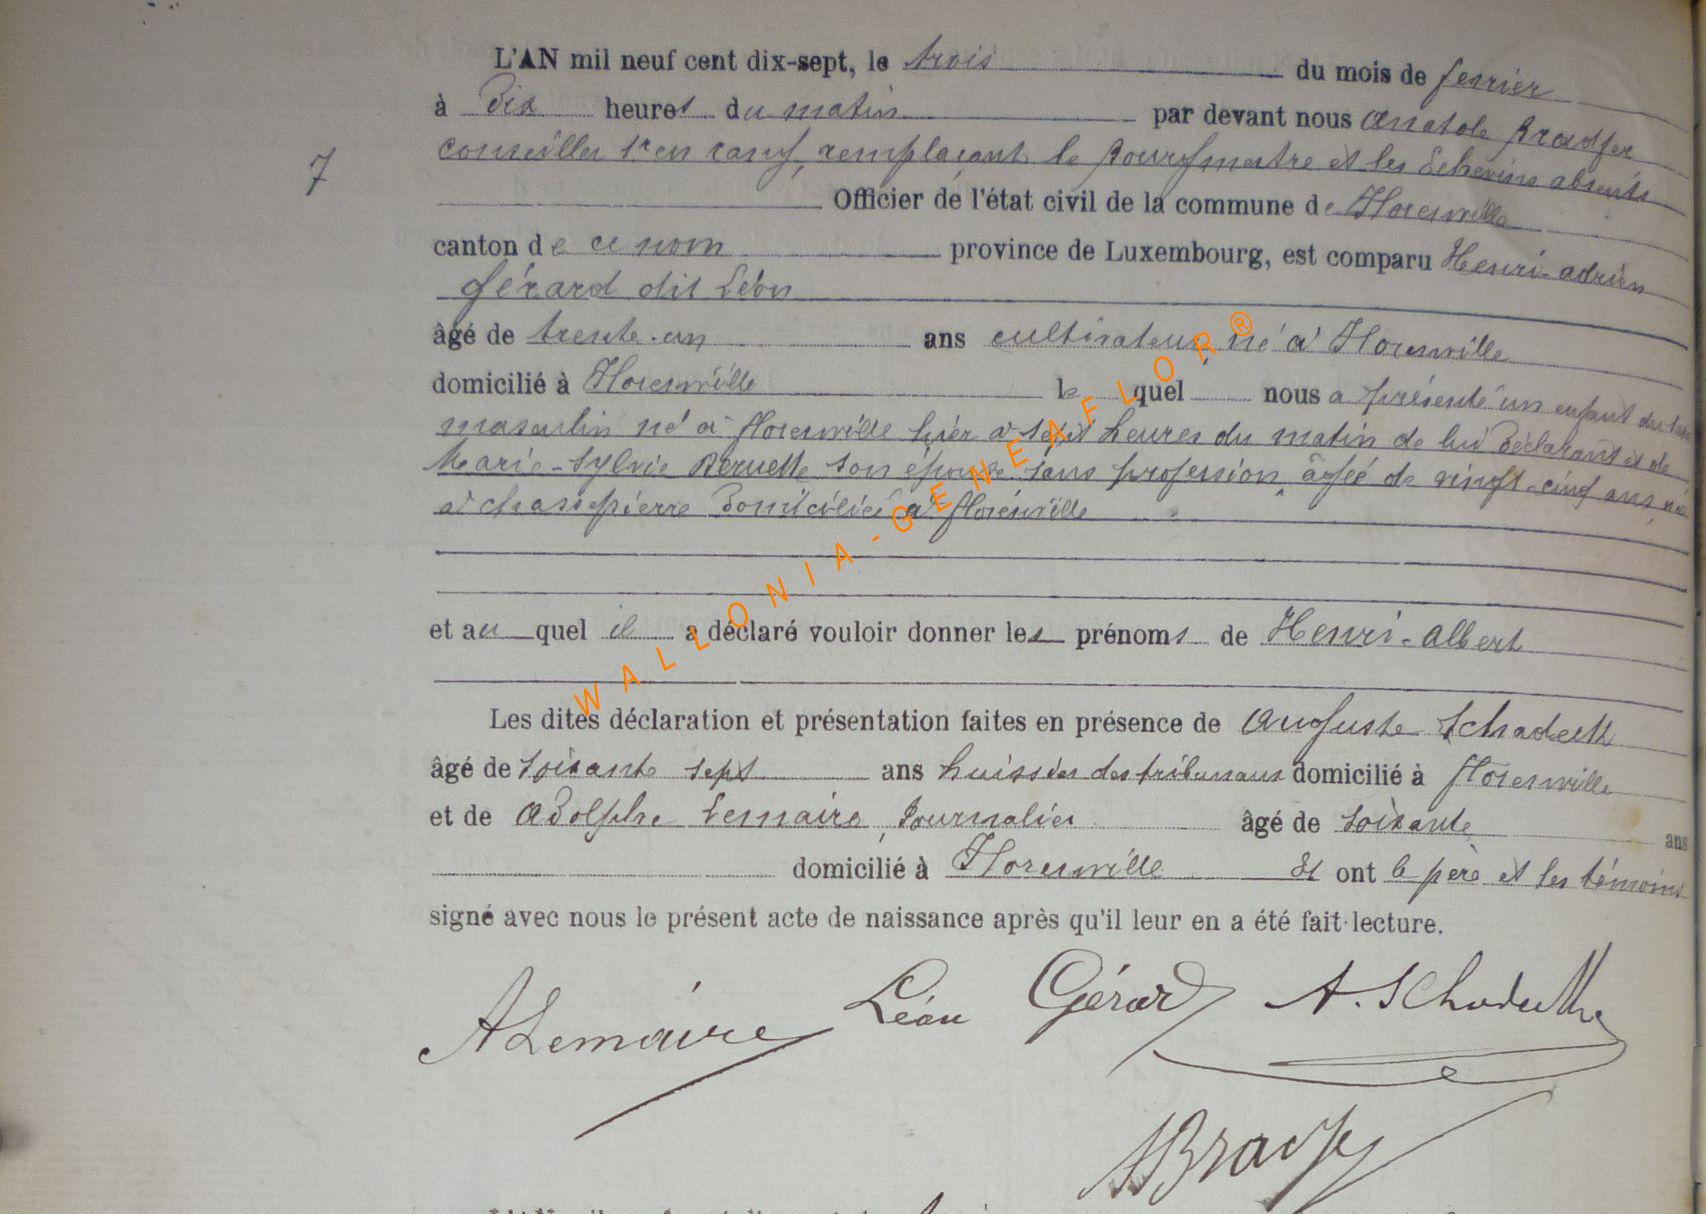 L'AN mil neuf cent dix-sept, le trois du mois de fevrier
à Dix heures du matin par devant nous Anatole Bradfer
7
conseiller 1er en rang, remplaçant le Bourgmestre et les Echevins absents
Officier de l'état civil de la commune de Florenville
canton de ce nom province de Luxembourg, est comparu Henri-adrien
Gérard dit Léon
âgé de trente-un ans cultivateur, né à Florenville
domicilié à Florenville lequel nous a présenté un enfant du sexe
masculin né à florenville hier à sept heures du matin de lui Déclarant et de
Marie-Sylvie son épouse sans profession, âgée de vingt-cinq ans, née
à chassepierre Domiciliée à florenville
et au quel il a déclaré vouloir donner les prénoms de Henri-Albert
Les dites déclaration et présentation faites en présence de Auguste
âgé de soixante sept ans huissier des tribunaux domicilié à florenville
et de Adolphe Lemaire, Journalier âgé de soixante ans
domicilié à Florenville Et ont le père et les témoins
signé avec nous le présent acte de naissance après qu'il leur en a été fait lecture.
ALemaire Léon Gérard A.
WALLONIA-GENEAFLOR®